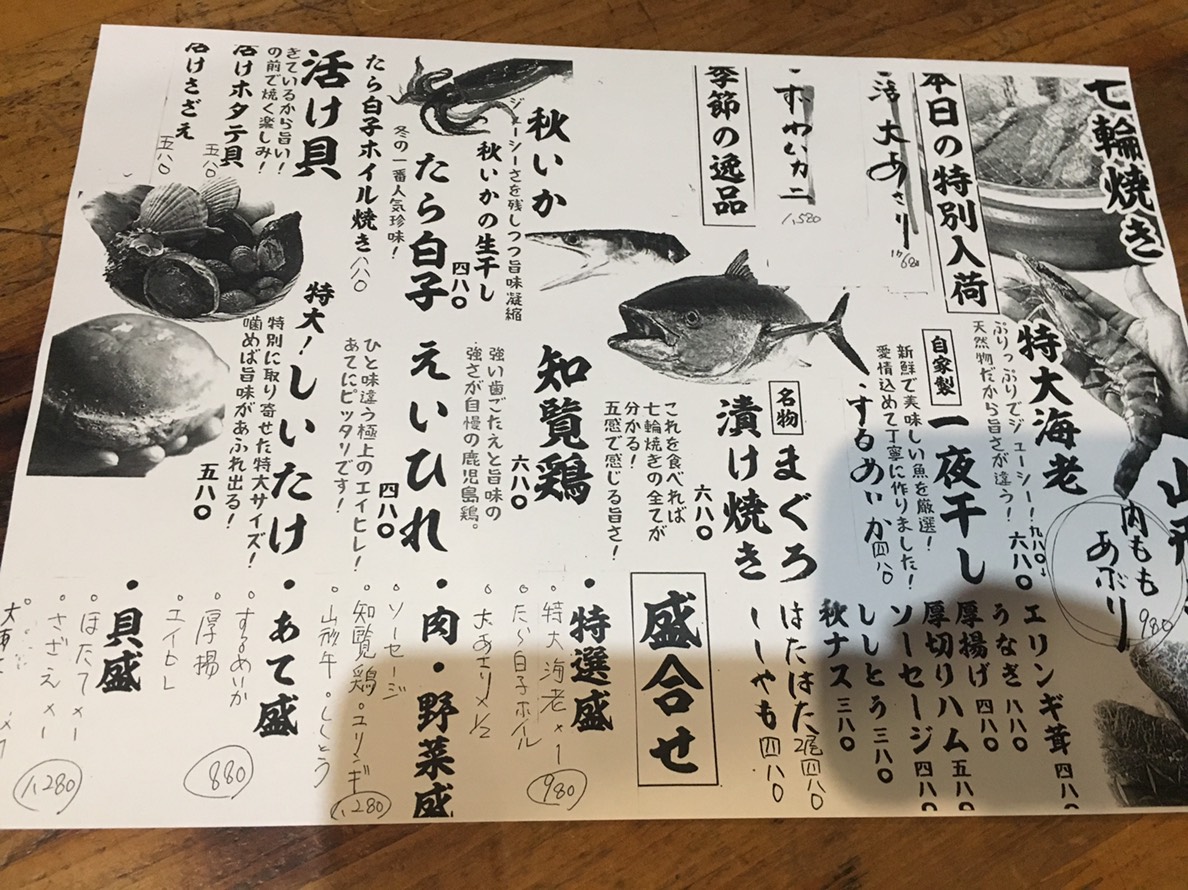 七輪焼き
本日の特別入荷
活大あさり
680
ずわいカニ
1,580
季節の逸品
秋いか
ジューシーさを残しつつ旨味凝縮
秋いかの生干し
四八〇
たら白子
冬の一番人気珍味!
たら白子ホイル焼き 八八〇
活け貝
きているから旨い!
の前で焼く楽しみ!
活けホタテ貝 五八〇
活けさざえ 五八〇
特大海老
ぷりっぷりでジューシー!
天然物だから旨さが違う!
九八〇
六八〇
内もも
あぶり
980
自家製
一夜干し
新鮮で美味しい魚を厳選!
愛情込めて丁寧に作りました!
・するめいか 四八〇
はたはた 2尾四八〇
ししゃも 四八〇
名物
まぐろ
漬け焼き
これを食べれば
七輪焼きの全てが
分かる!
五感で感じる旨さ!
六八〇
知覧鶏
強い歯ごたえと旨味の
強さが自慢の鹿児島鶏。
六八〇
えいひれ
ひと味違う極上のエイヒレ!
あてにピッタリです!
四八〇
特大!しいたけ
特別に取り寄せた特大サイズ!
噛めば旨味があふれ出る!
五八〇
エリンギ茸 四八〇
うなぎ 八八〇
厚揚げ 四八〇
厚切りハム 五八〇
ソーセージ 四八〇
ししとう 三八〇
秋ナス 三八〇
盛合せ
・特選盛
・特大海老×1
・たら白子ホイル
・大あさり×1/2
980
・肉・野菜盛
・ソーセージ
・知覧鶏 ・エリンギ
・山形牛・ししとう
1,280
・あて盛
・するめいか
・厚揚
・エイヒレ
880
・貝盛
・ほたて×1
・さざえ×1
1,280